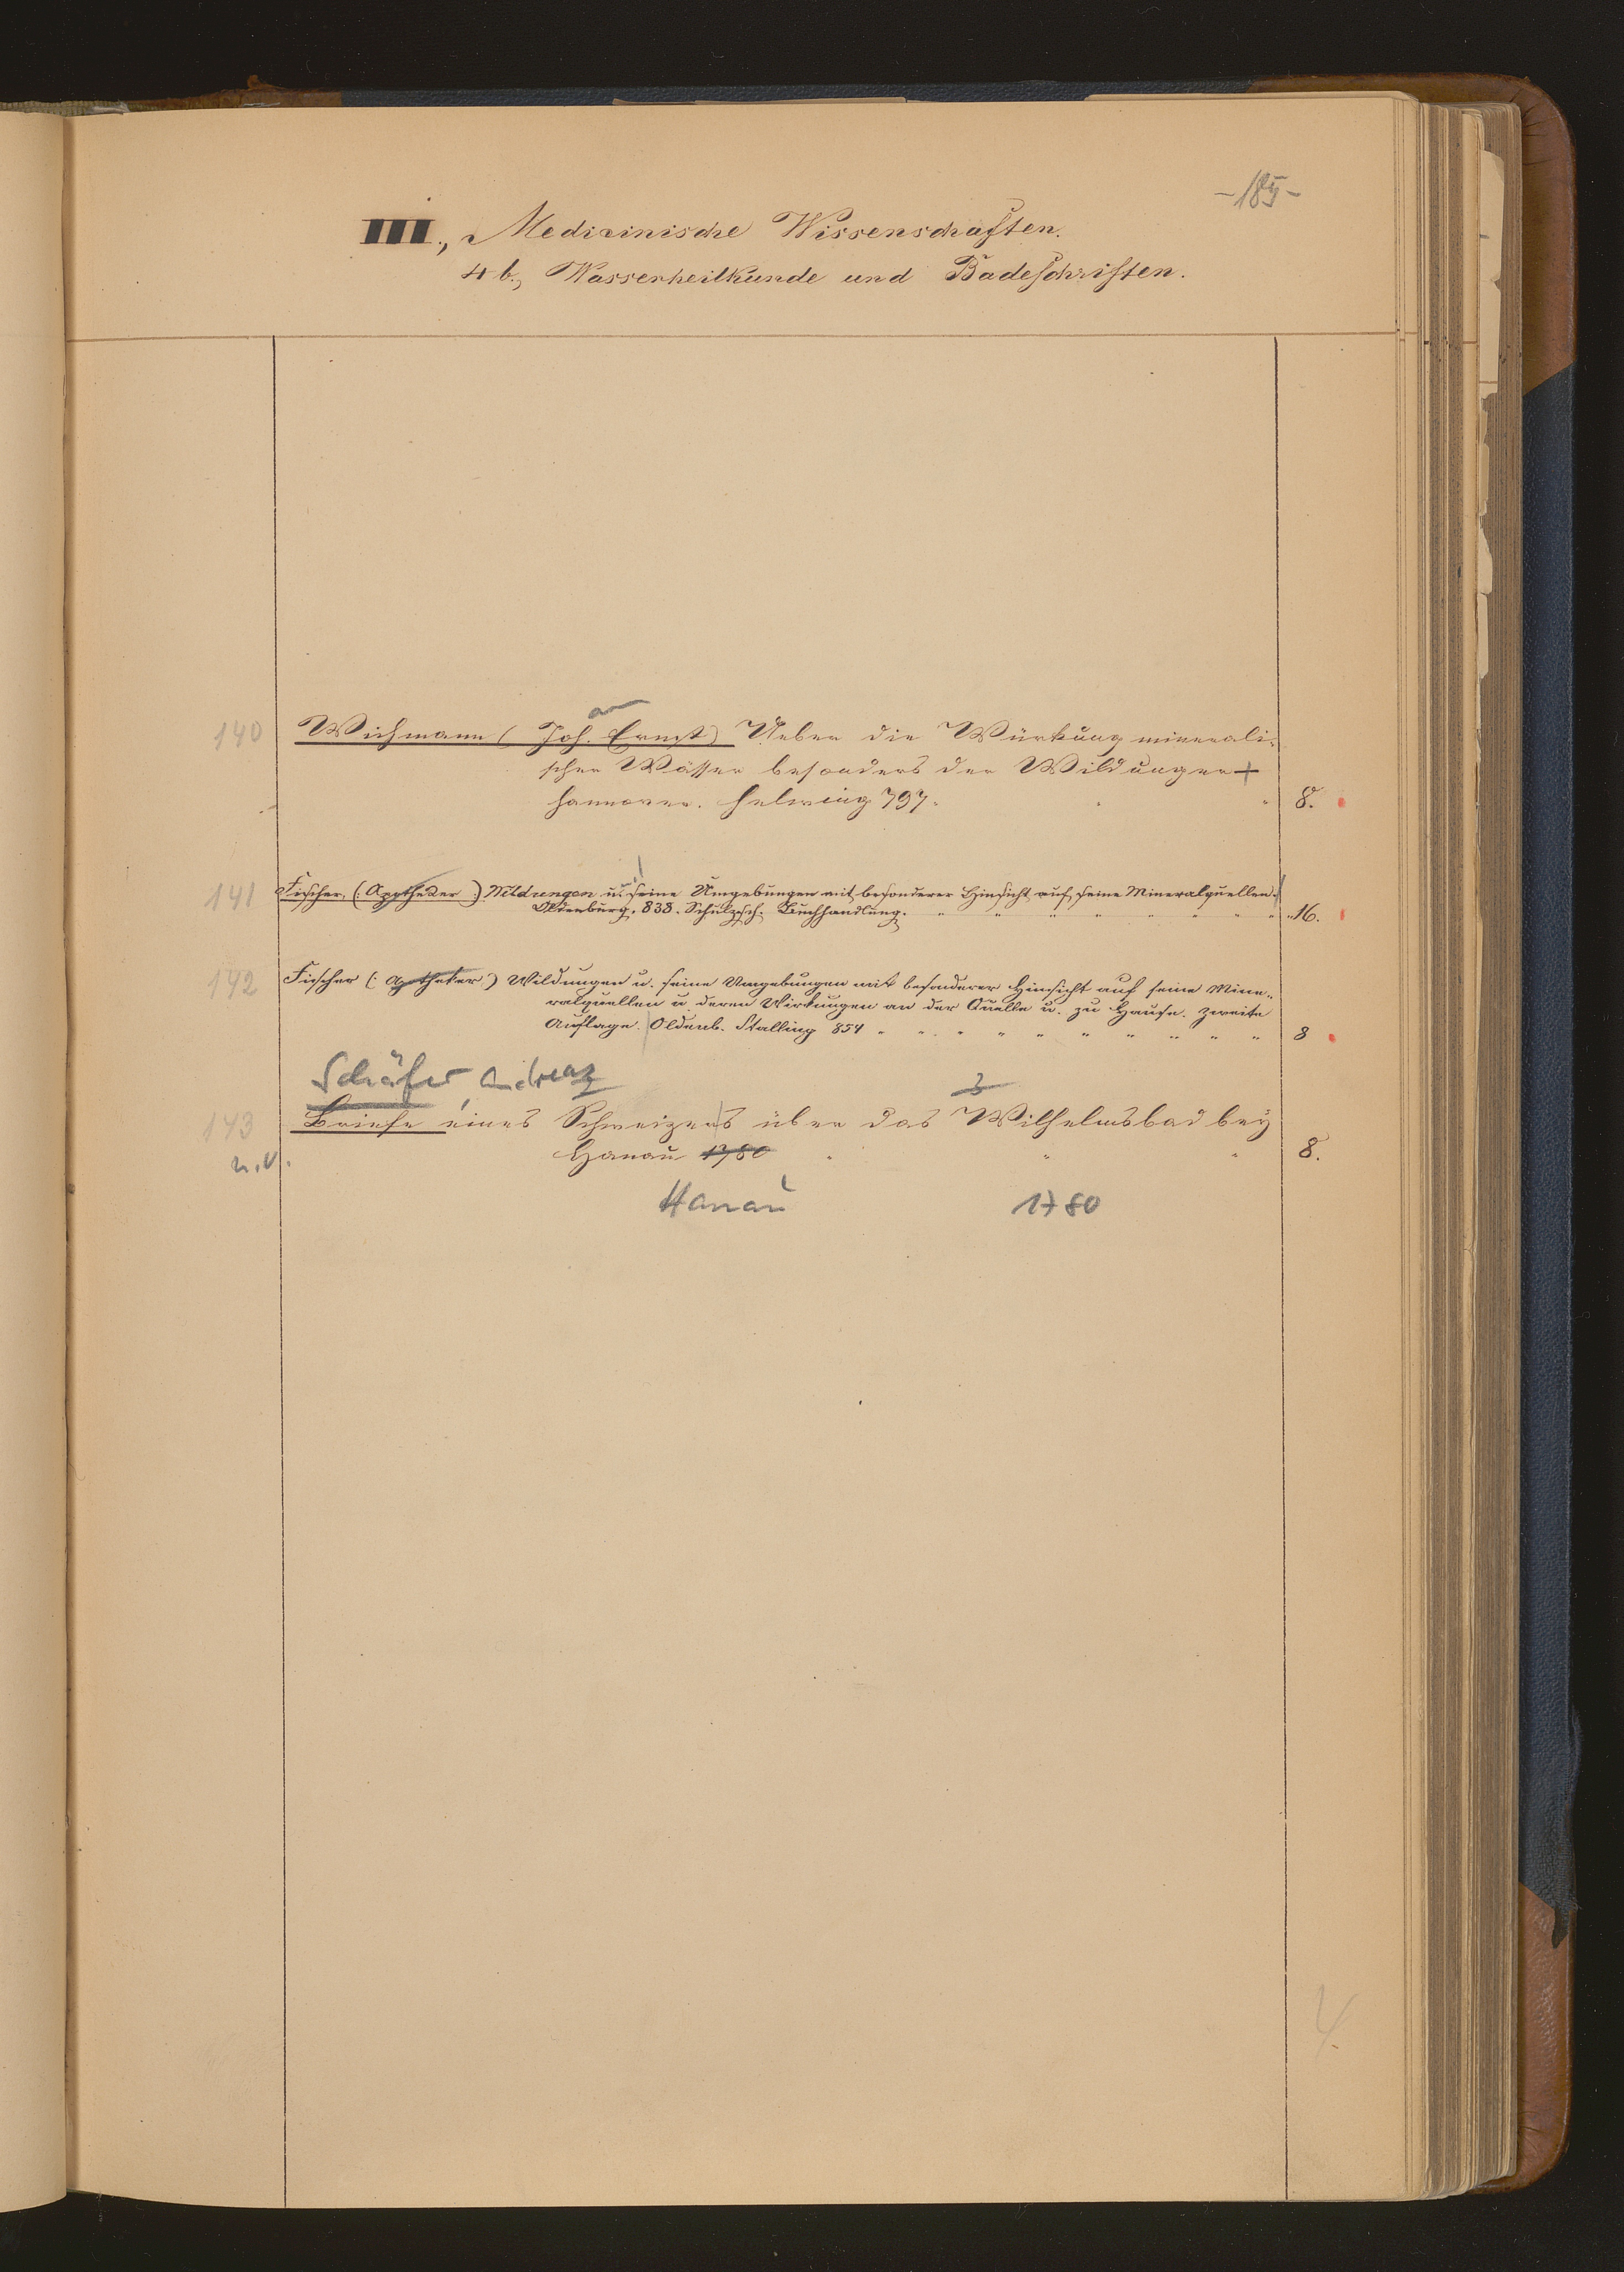 -185-
III., Medicinische Wissenschaften.
4 b., Wasserheilkunde und Badeschriften.
an
140 Wichmann (Joh. Ernst) Ueber die Würkung minerali-
scher Wässer besonders der Wildunger
Hannover. Helwing 797. " " 8.
141 Fischer, (: Apotheker :) Wildungen u. seine Umgebungen mit besonderer Hinsicht auf seine Mineralquellen.
Oldenburg, 838. Schulzesch. Buchhandlung. " " " " " " " " " 16.
142 Fischer (: Apotheker) Wildungen u. seine Umgebungen mit besonderer Hinsicht auf seine Mine-
ralquellen u deren Wirkungen an der Quelle u. zu Hause. Zweite
Auflage. Oldenb. Stalling 854 " " " " " " " " " " 8
Schäfer, Andreas
143 Briefe eines Schweizers über das Wilhelmsbad bey
n.v. Hanau 1780 " " " 8.
Hanau 1780
4.